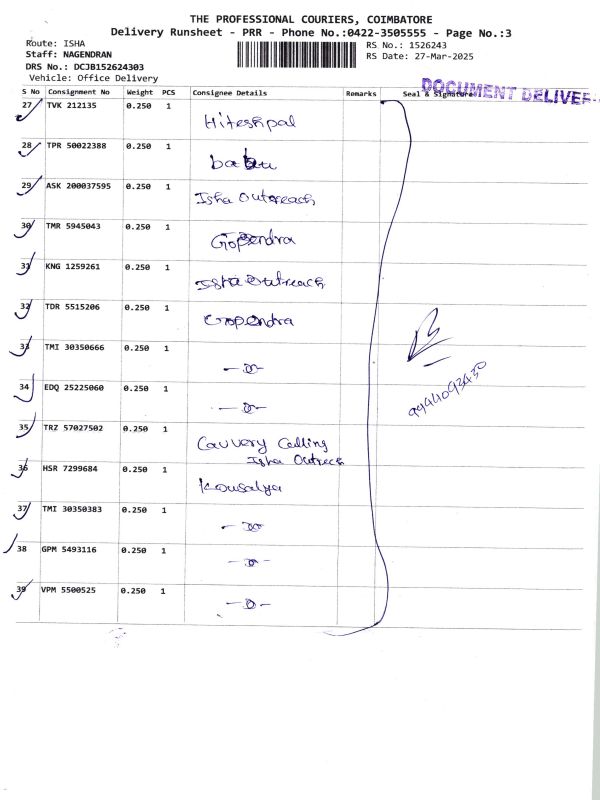 THE PROFESSIONAL COURIERS, COIMBATORE
Delivery Runsheet - PRR - Phone No.:0422-3505555 - Page No.:3
Route: ISHA
Staff: NAGENDRAN
DRS No.: DCJB152624303
Vehicle: Office Delivery
RS No.: 1526243
RS Date: 27-Mar-2025
DOCUMENT DELIVER
S No Consignment No Weight PCS Consignee Details Remarks Seal & Signature
27 TVK 212135 0.250 1
Hiteshpal
28 TPR 50022388 0.250 1
babu
29 ASK 200037595 0.250 1
Isha Outreach
30 TMR 5945043 0.250 1
Gopendra
31 KNG 1259261 0.250 1
Isha Outreach
32 TDR 5515206 0.250 1
Gopendra
33 TMI 30350666 0.250 1
34 EDQ 25225060 0.250 1
9944093430
35 TRZ 57027502 0.250 1
Cauvery Calling
Isha Outrech
36 HSR 7299684 0.250 1
Kousalya
37 TMI 30350383 0.250 1
38 GPM 5493116 0.250 1
39 VPM 5500525 0.250 1